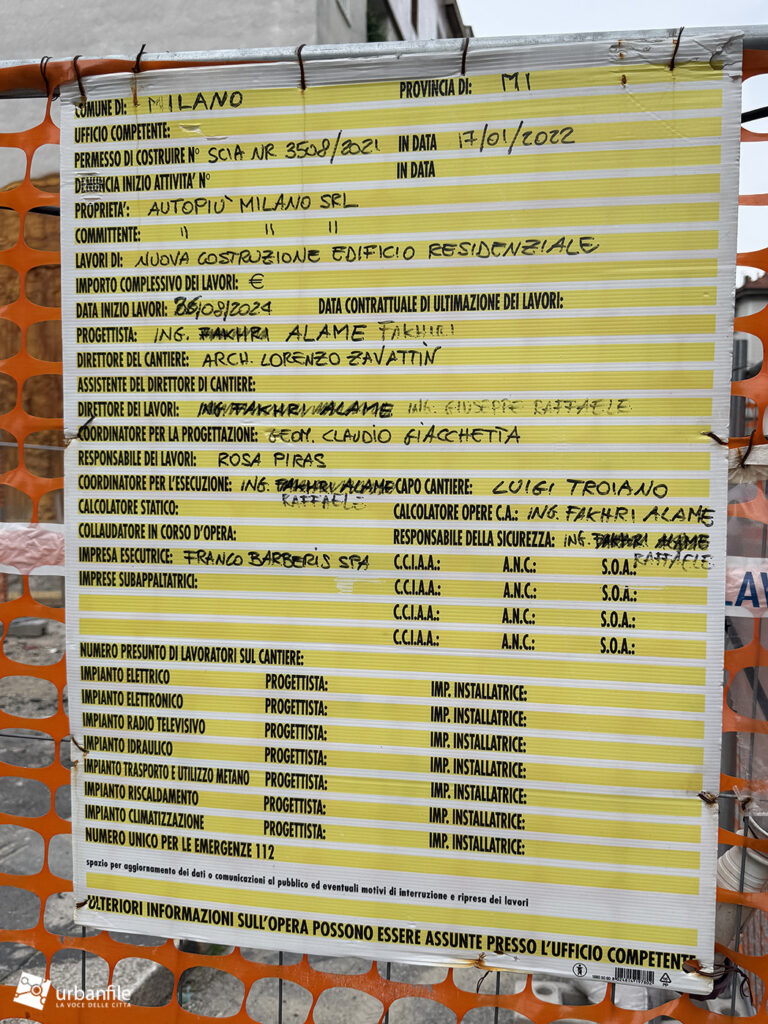 COMUNE DI: MILANO PROVINCIA DI: MI
UFFICIO COMPETENTE:
PERMESSO DI COSTRUIRE N° SCIA NR 3508/2021 IN DATA 17/01/2022
DENUNCIA INIZIO ATTIVITA' N° IN DATA
PROPRIETA': AUTOPIÙ MILANO SRL
COMMITTENTE: " " "
LAVORI DI: NUOVA COSTRUZIONE EDIFICIO RESIDENZIALE
IMPORTO COMPLESSIVO DEI LAVORI: €
DATA INIZIO LAVORI: 26/08/2024 DATA CONTRATTUALE DI ULTIMAZIONE DEI LAVORI:
PROGETTISTA: ING. FAKHRI ALAME FAKHIRI
DIRETTORE DEL CANTIERE: ARCH. LORENZO ZAVATTIN
ASSISTENTE DEL DIRETTORE DI CANTIERE:
DIRETTORE DEI LAVORI: ING. FAKHRI ALAME ING. GIUSEPPE RAFFAELE
COORDINATORE PER LA PROGETTAZIONE: GEOM. CLAUDIO GIACCHETTA
RESPONSABILE DEI LAVORI: ROSA PIRAS
COORDINATORE PER L'ESECUZIONE: ING. FAKHRI ALAME CAPO CANTIERE: LUIGI TROIANO
RAFFAELE
CALCOLATORE STATICO: CALCOLATORE OPERE C.A.: ING. FAKHRI ALAME
COLLAUDATORE IN CORSO D'OPERA: RESPONSABILE DELLA SICUREZZA: ING. FAKHRI ALAME
RAFFAELE
IMPRESA ESECUTRICE: FRANCO BARBERIS SPA C.C.I.A.A.: A.N.C.: S.O.A.:
IMPRESE SUBAPPALTATRICI: C.C.I.A.A.: A.N.C.: S.O.A.:
C.C.I.A.A.: A.N.C.: S.O.A.:
C.C.I.A.A.: A.N.C.: S.O.A.:
NUMERO PRESUNTO DI LAVORATORI SUL CANTIERE:
IMPIANTO ELETTRICO PROGETTISTA: IMP. INSTALLATRICE:
IMPIANTO ELETTRONICO PROGETTISTA: IMP. INSTALLATRICE:
IMPIANTO RADIO TELEVISIVO PROGETTISTA: IMP. INSTALLATRICE:
IMPIANTO IDRAULICO PROGETTISTA: IMP. INSTALLATRICE:
IMPIANTO TRASPORTO E UTILIZZO METANO PROGETTISTA: IMP. INSTALLATRICE:
IMPIANTO RISCALDAMENTO PROGETTISTA: IMP. INSTALLATRICE:
IMPIANTO CLIMATIZZAZIONE PROGETTISTA: IMP. INSTALLATRICE:
NUMERO UNICO PER LE EMERGENZE 112
spazio per aggiornamento dei dati o comunicazioni al pubblico ed eventuali motivi di interruzione e ripresa dei lavori
ULTERIORI INFORMAZIONI SULL'OPERA POSSONO ESSERE ASSUNTE PRESSO L'UFFICIO COMPETENTE
LAV
urbanfile
LA VOCE DELLE CITTÀ